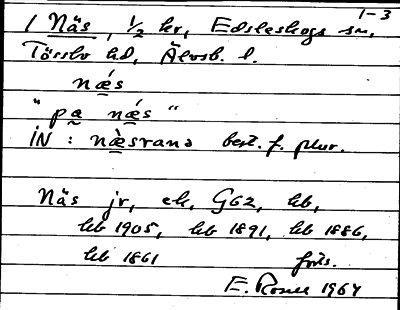 1-3
1 Näs, 1/2 kr, Edsleskogs sn,
Tössbo hd, Älvsb. l.
næ´s
"pa næ´s"
IN: næ`srana best. f. plur.
Näs jr, ek, G62, kb,
kb 1905, kb 1891, kb 1886,
kb 1861 forts.
E. Rosell 1964